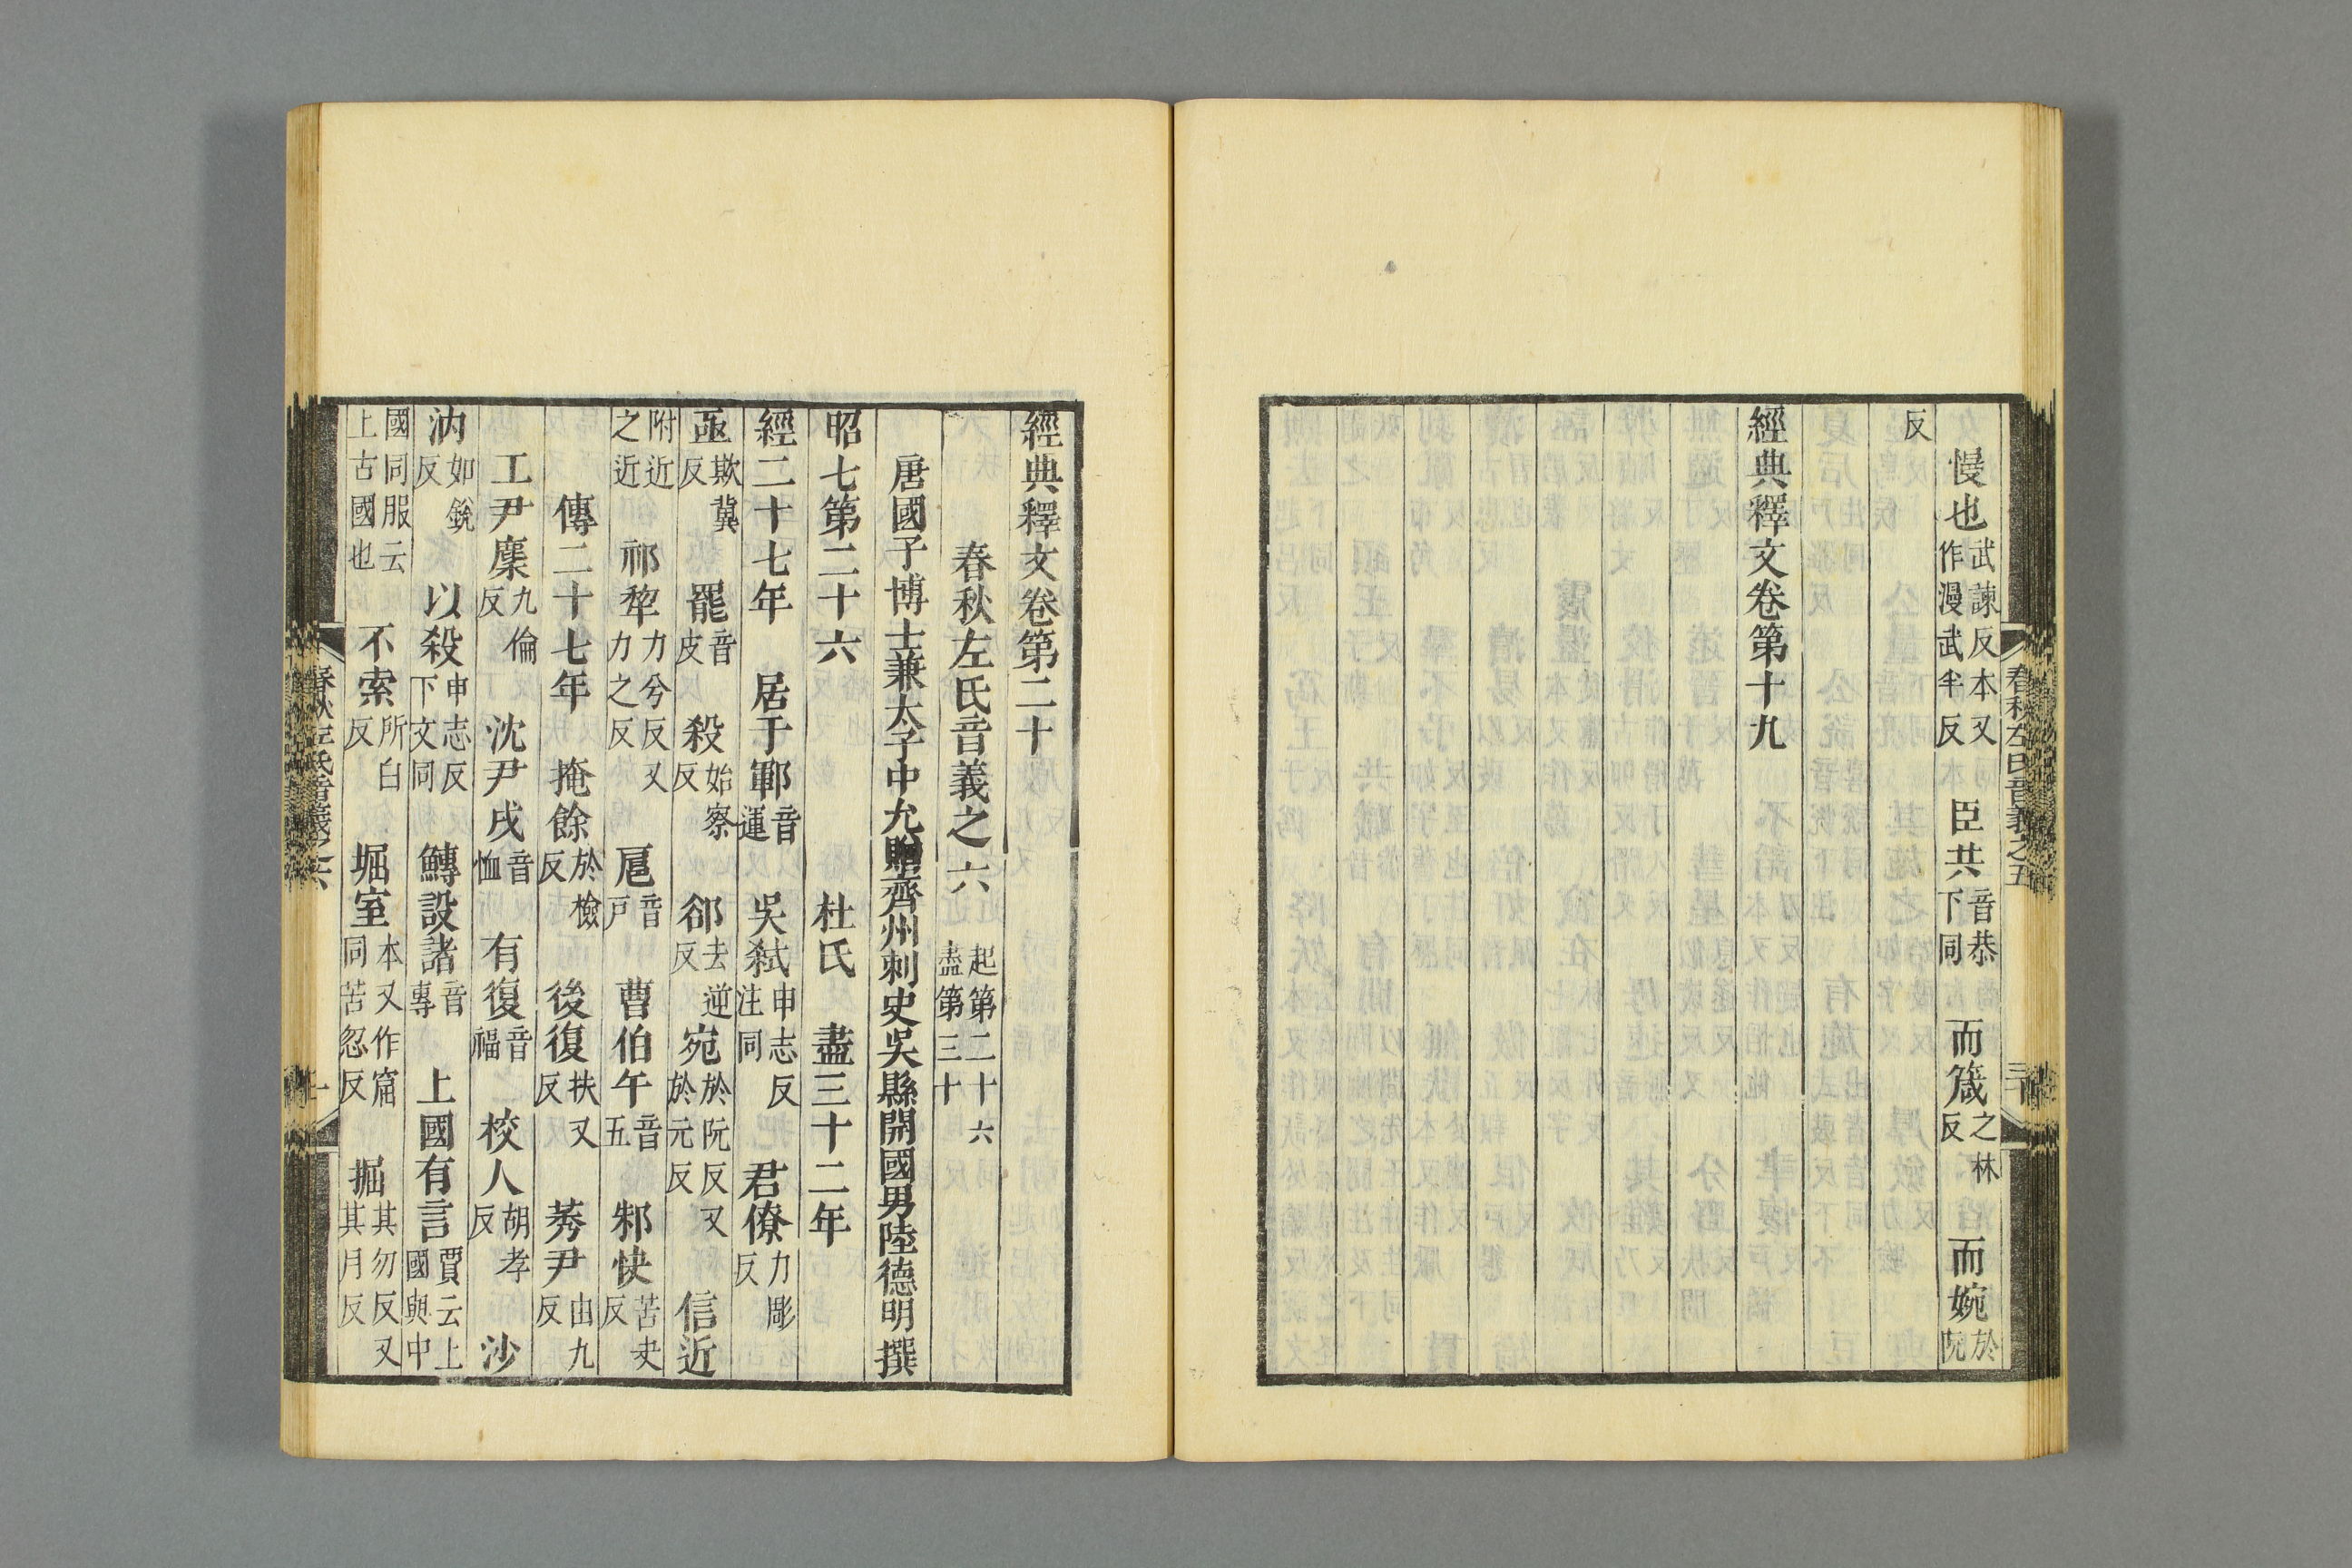 慢也武諫反本又作漫武半反 臣共音恭下同 而箴之林反 而婉於阮
反
經典釋文卷第十九
春秋左氏音義之五
經典釋文卷第二十
春秋左氏音義之六起第二十六盡第三十
唐國子博士兼太子中允贈齊州刺史吳縣開國男陸德明撰
昭七第二十六 杜氏 盡三十二年
經二十七年 居于鄆音運 吳弒申志反注同 君僚力彫反
亟欺冀反 罷音皮 殺始察反 郤去逆反 宛於阮反又於元反 信近
附近之近 祁犂力兮反又力之反 扈音戸 曹伯午音五 邾快苦夬反
傳二十七年 掩餘於檢反 後復扶又反 莠尹由九反
工尹麇九倫反 沈尹戌音恤 有復音福 校人胡孝反 沙
汭如銳反 以殺申志反下文同 鱄設諸音專 上國有言賈云上國與中
國同服云上古國也 不索所白反 堀室本又作窟同苦忽反 掘其勿反又其月反
春秋左氏音義之六 一